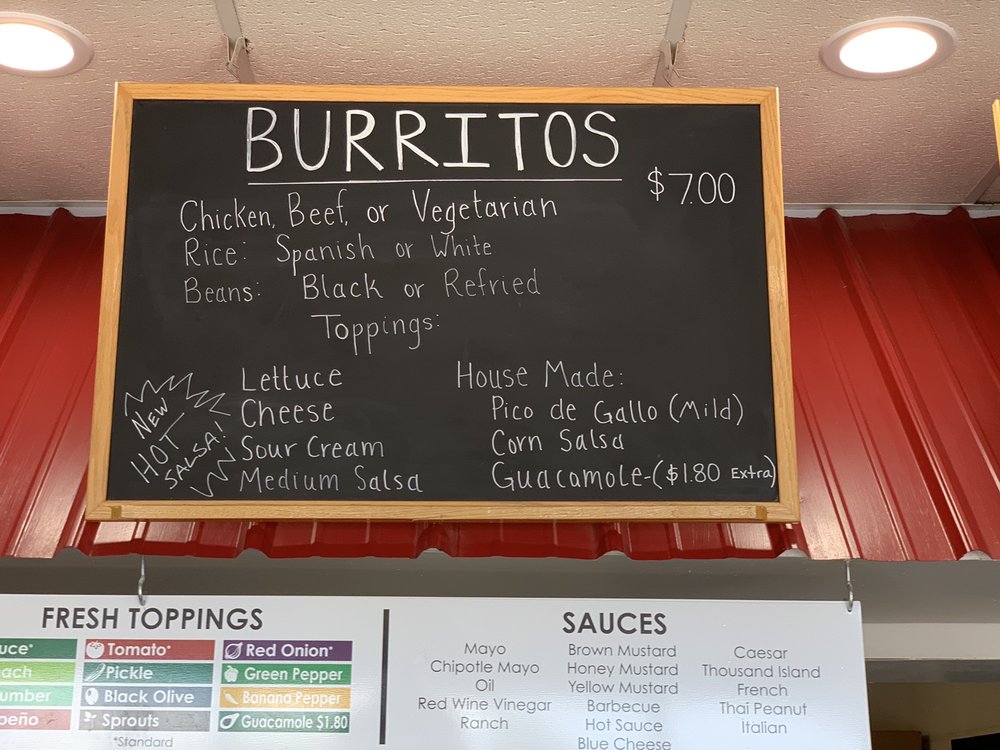 BURRITOS
$7.00
Chicken, Beef, or Vegetarian
Rice: Spanish or White
Beans: Black or Refried
Toppings:
Lettuce
Cheese
Sour Cream
Medium Salsa
NEW
HOT
SALSA!
House Made:
Pico de Gallo (Mild)
Corn Salsa
Guacamole-($1.80 Extra)
FRESH TOPPINGS
Tomato*
Pickle
Black Olive
Sprouts
Red Onion*
Green Pepper
Banana Pepper
Guacamole $1.80
*Standard
SAUCES
Mayo
Chipotle Mayo
Oil
Red Wine Vinegar
Ranch
Brown Mustard
Honey Mustard
Yellow Mustard
Barbecue
Hot Sauce
Blue Cheese
Caesar
Thousand Island
French
Thai Peanut
Italian